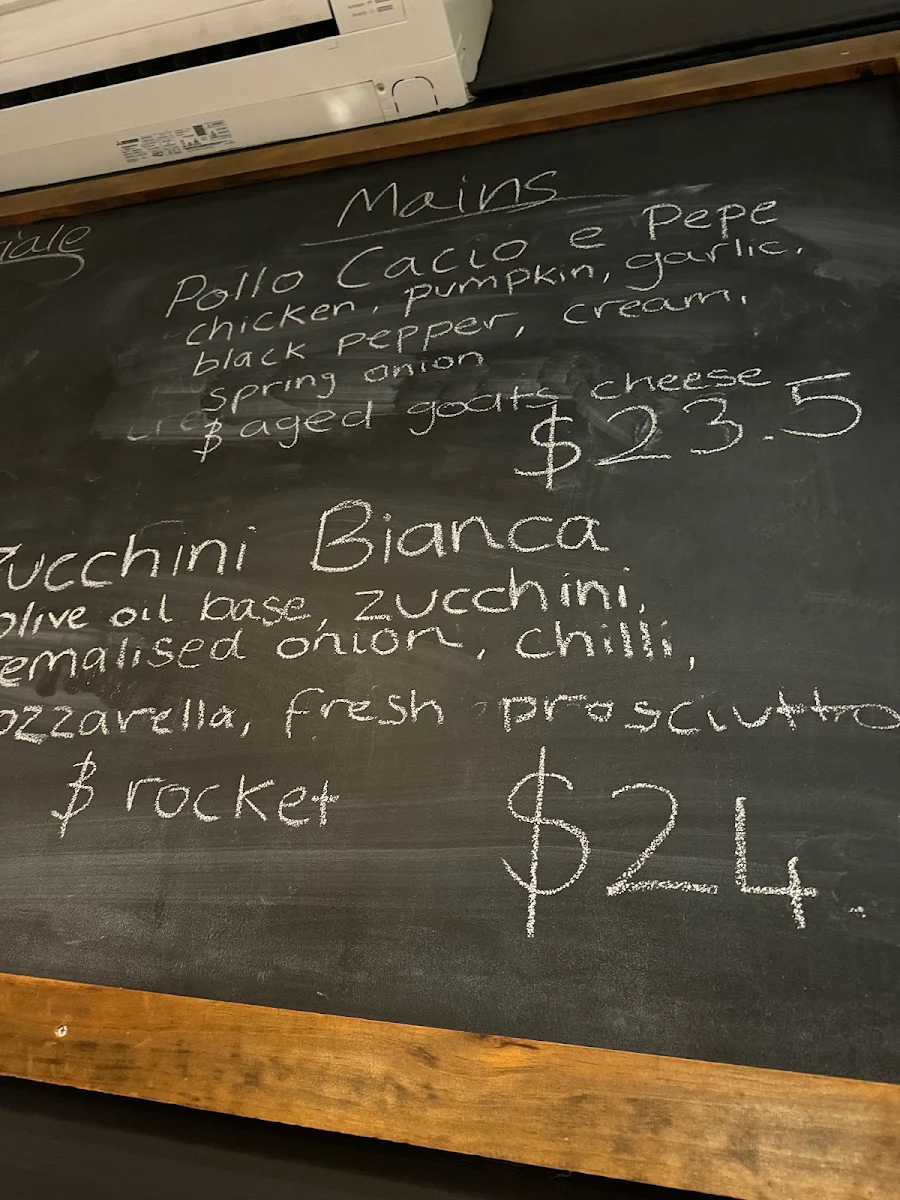 Mains
iale
Pollo Cacio e Pepe
chicken, pumpkin, garlic,
black pepper, cream,
spring onion
$ aged goats cheese
$23.5
Zucchini Bianca
olive oil base, zucchini,
emalised onion, chilli,
ozzarella, fresh prosciutto
$ rocket
$24.